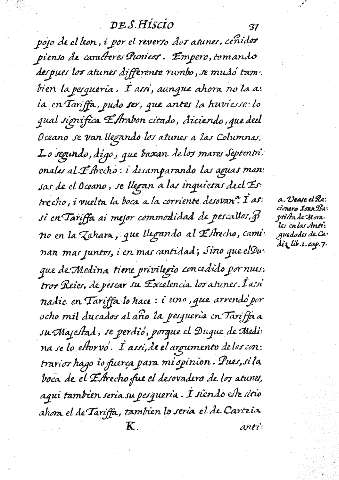 DE S. HISCIO 31
pojo de el leon, i por el reverso dos atunes, ceñidos
pienso de caracteres Punicos. Empero, tomando
despues los atunes differente rumbo, se mudó tam-
bien la pesqueria. I assi, aunque ahora no la a-
ia en Tariffa, pudo ser, que antes la huviesse: lo
qual significa Estrabon citado, diciendo, que de el
Oceano se van llegando los atunes a las Columnas.
Lo segundo, digo, que baxan de los mares Septentri-
onales al Estrecho: i desamparando las aguas man-
sas de el Oceano, se llegan a las inquietas de el Es-
trecho, i vuelta la boca a la corriente desovan. I as-
si en Tariffa ai mejor commodidad de pescallos, q̃
no en la Zahara, que llegando al Estrecho, cami-
nan mas juntos, i en mas cantidad; Sino que el Du-
que de Medina tiene privilegio concedido por nues-
tros Reies, de pescar su Excelencia los atunes. I assi
nadie en Tariffa lo hace: i uno, que arrendó por
ocho mil ducados al año la pesqueria en Tariffa a
su Majestad, se perdió, porque el Duque de Medi-
na se lo estorvó. I assi, de el argumento de los con-
trarios hago io fuerça para mi opinion. Pues, si la
boca de el Estrecho fue el desovadero de los atunes,
aqui tambien seria su pesqueria. I siendo este sitio
ahora el de Tariffa, tambien lo seria el de Carteia
K anti-
a. Vease el Ra-
cionero Ioan Ba-
ptista de
les en las Anti-
guedades de Ca-
diz, lib. 1. cap. 7.